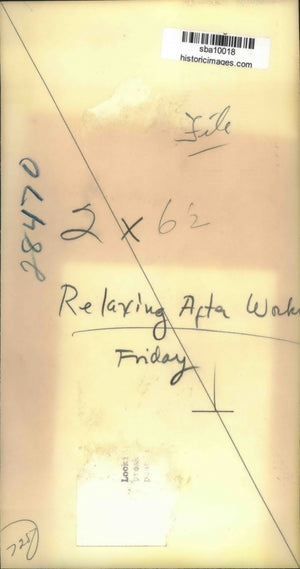 sba10018
historicimages.com
File
28470
2 x 6½
Relaxing After Work
Friday
1
LOOKI